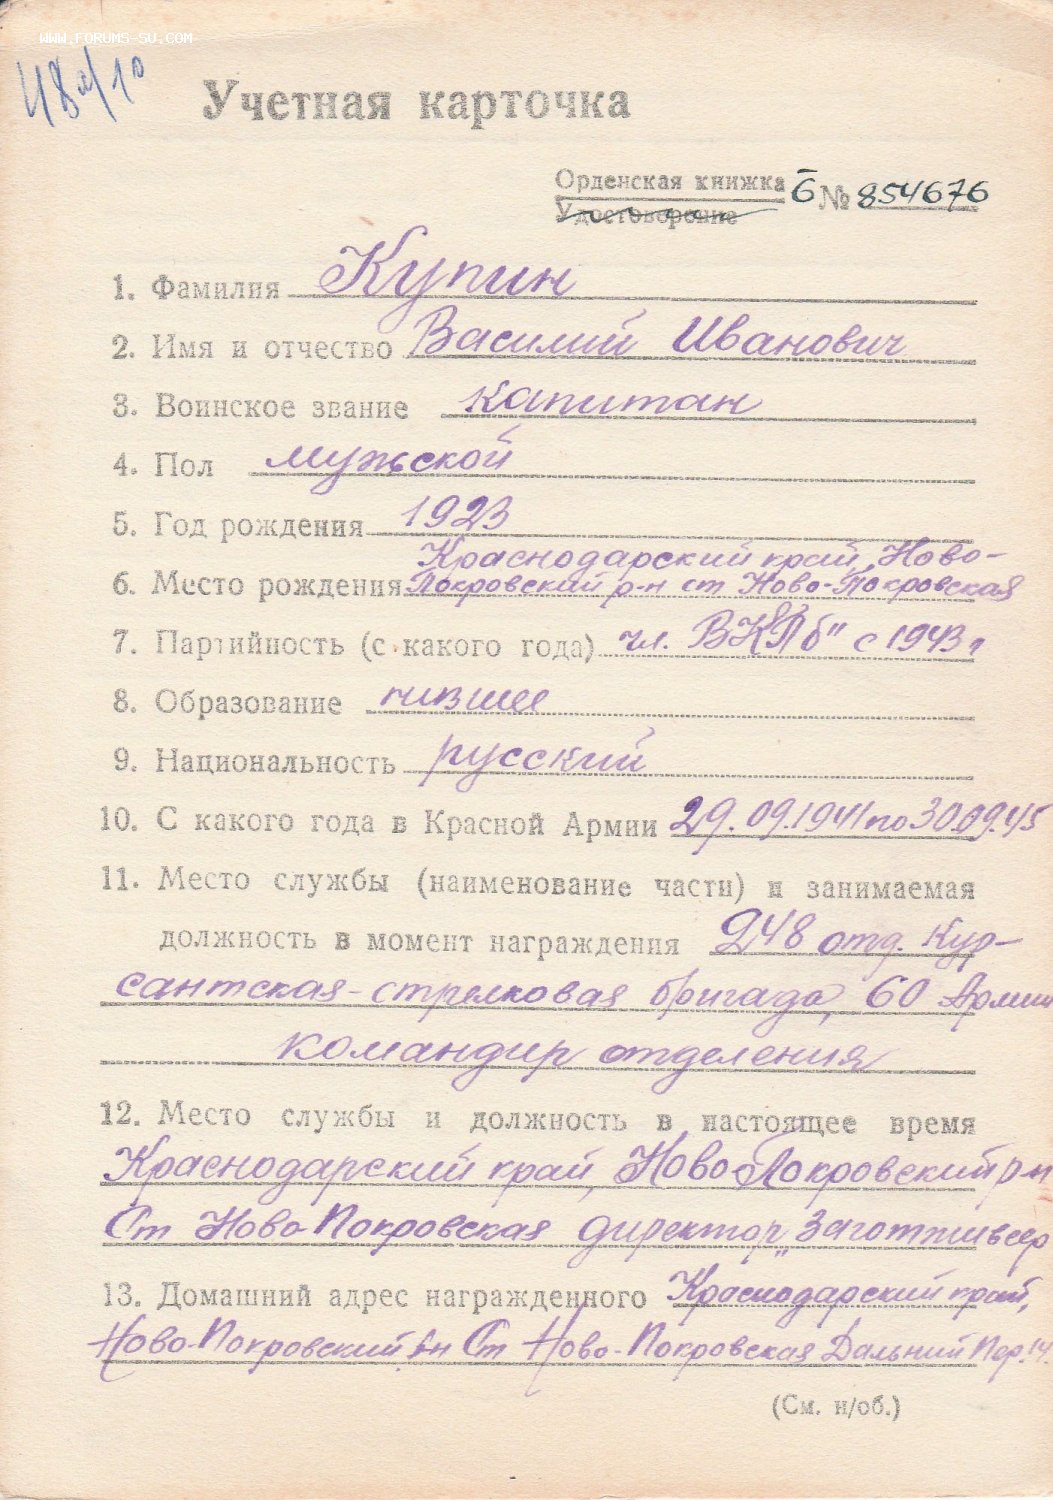 WWW.FORUMS-SU.COM
Учетная карточка
Орденская книжка Б № 854676
Удостоверение
1. Фамилия Купин
2. Имя и отчество Василий Иванович
3. Воинское звание капитан
4. Пол мужской
5. Год рождения 1923
Краснодарский край, Ново-
6. Место рождения Покровский р-н ст. Ново-Покровская
7. Партийность (с какого года) чл. ВКПб" с 1943 г
8. Образование низшее
9. Национальность русский
10. С какого года в Красной Армии 29.09.1941 по 30.09.45
11. Место службы (наименование части) и занимаемая
должность в момент награждения 248 отд. Кур-
сантская-стрелковая бригада, 60 Армии
командир отделения
12. Место службы и должность в настоящее время
Краснодарский край, Ново-Покровский р-н
Ст Ново-Покровская директор „Заготживсыр
13. Домашний адрес награжденного Краснодарский край,
Ново-Покровский р-н Ст Ново-Покровская Дальний Пер. 14.
(См. н/об.)